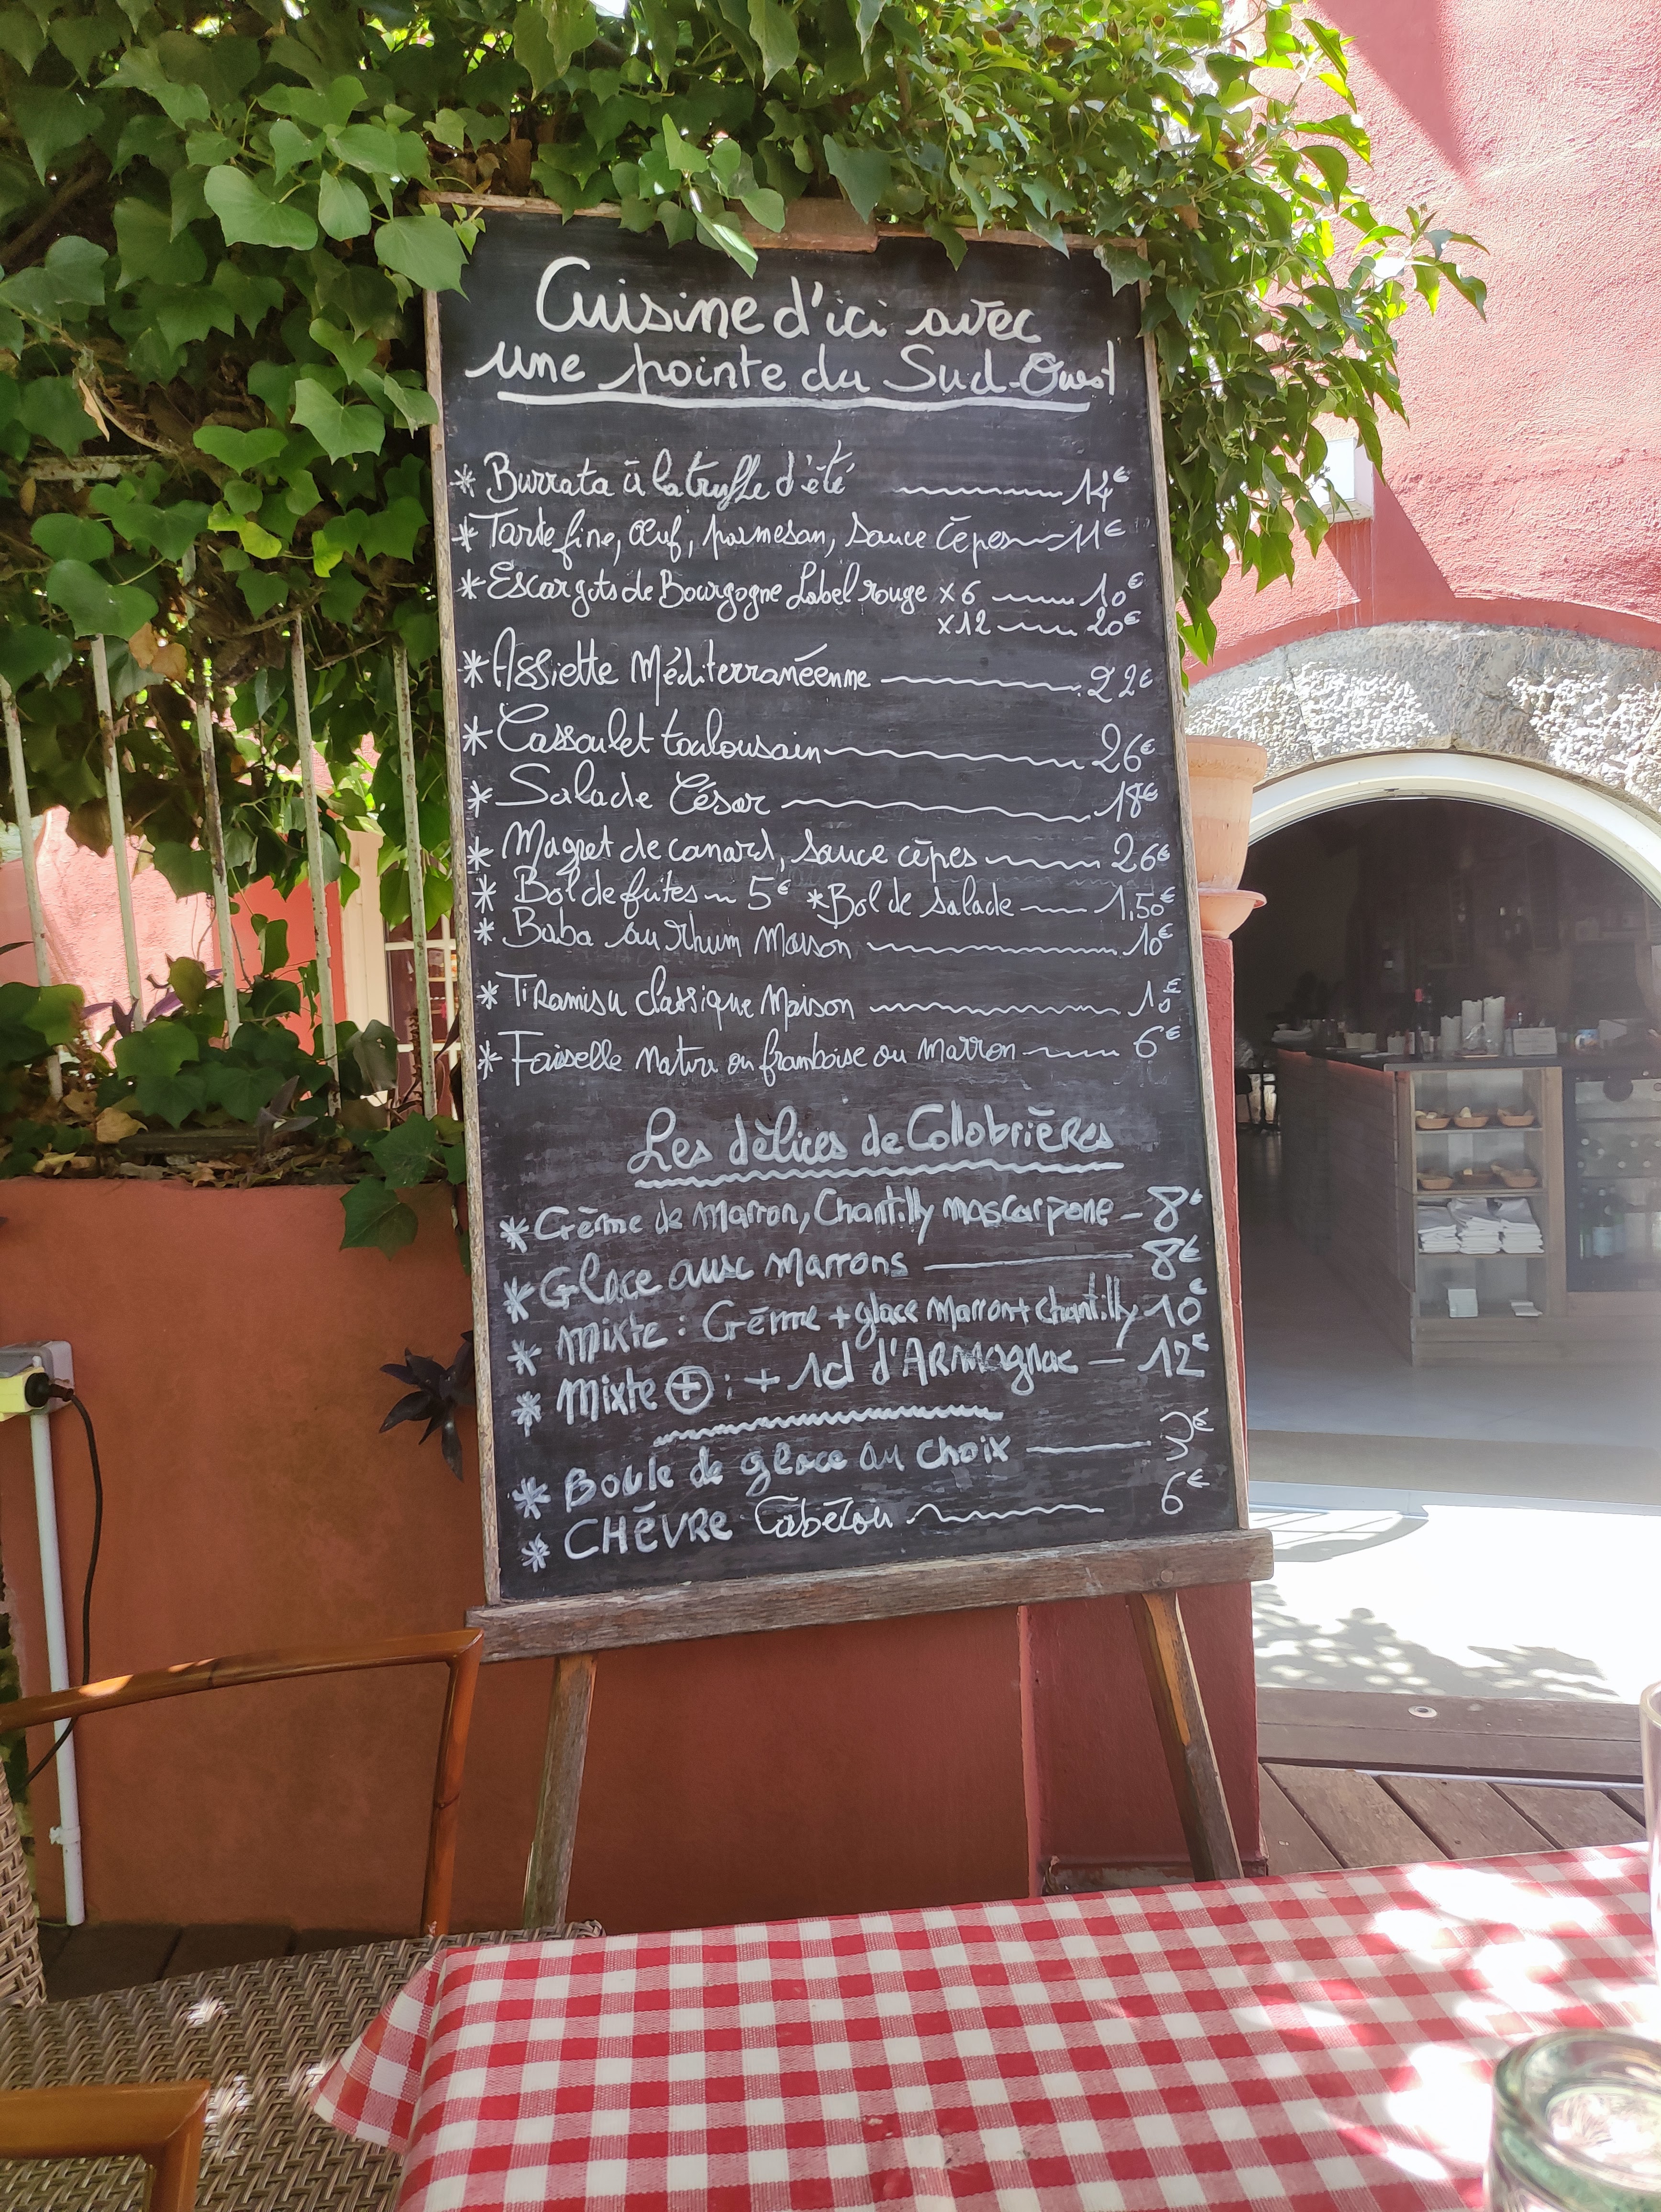 Cuisine d'ici avec
une pointe du Sud-Ouest
* Burrata à la truffe d'été 14€
* Tarte fine, œuf, parmesan, sauce cèpes 11€
* Escargots de Bourgogne Label rouge x6 10€
x12 20€
* Assiette Méditerranéenne 22€
* Cassoulet toulousain 26€
* Salade César 18€
* Magret de canard, sauce cèpes 26€
* Bol de frites 5€ * Bol de salade 1,50€
* Baba au Rhum Maison 10€
* Tiramisu classique Maison 10€
* Faisselle nature ou framboise ou marron 6€
Les délices de Collobrières
* Crème de marron, Chantilly mascarpone - 8€
* Glace aux marrons 8€
* Mixte : Crème + glace marron + chantilly 10€
* Mixte ⊕ : + 1cl d'ARMagnac - 12€
* Boule de glace au choix 3€
* CHÈVRE Cabécou 6€